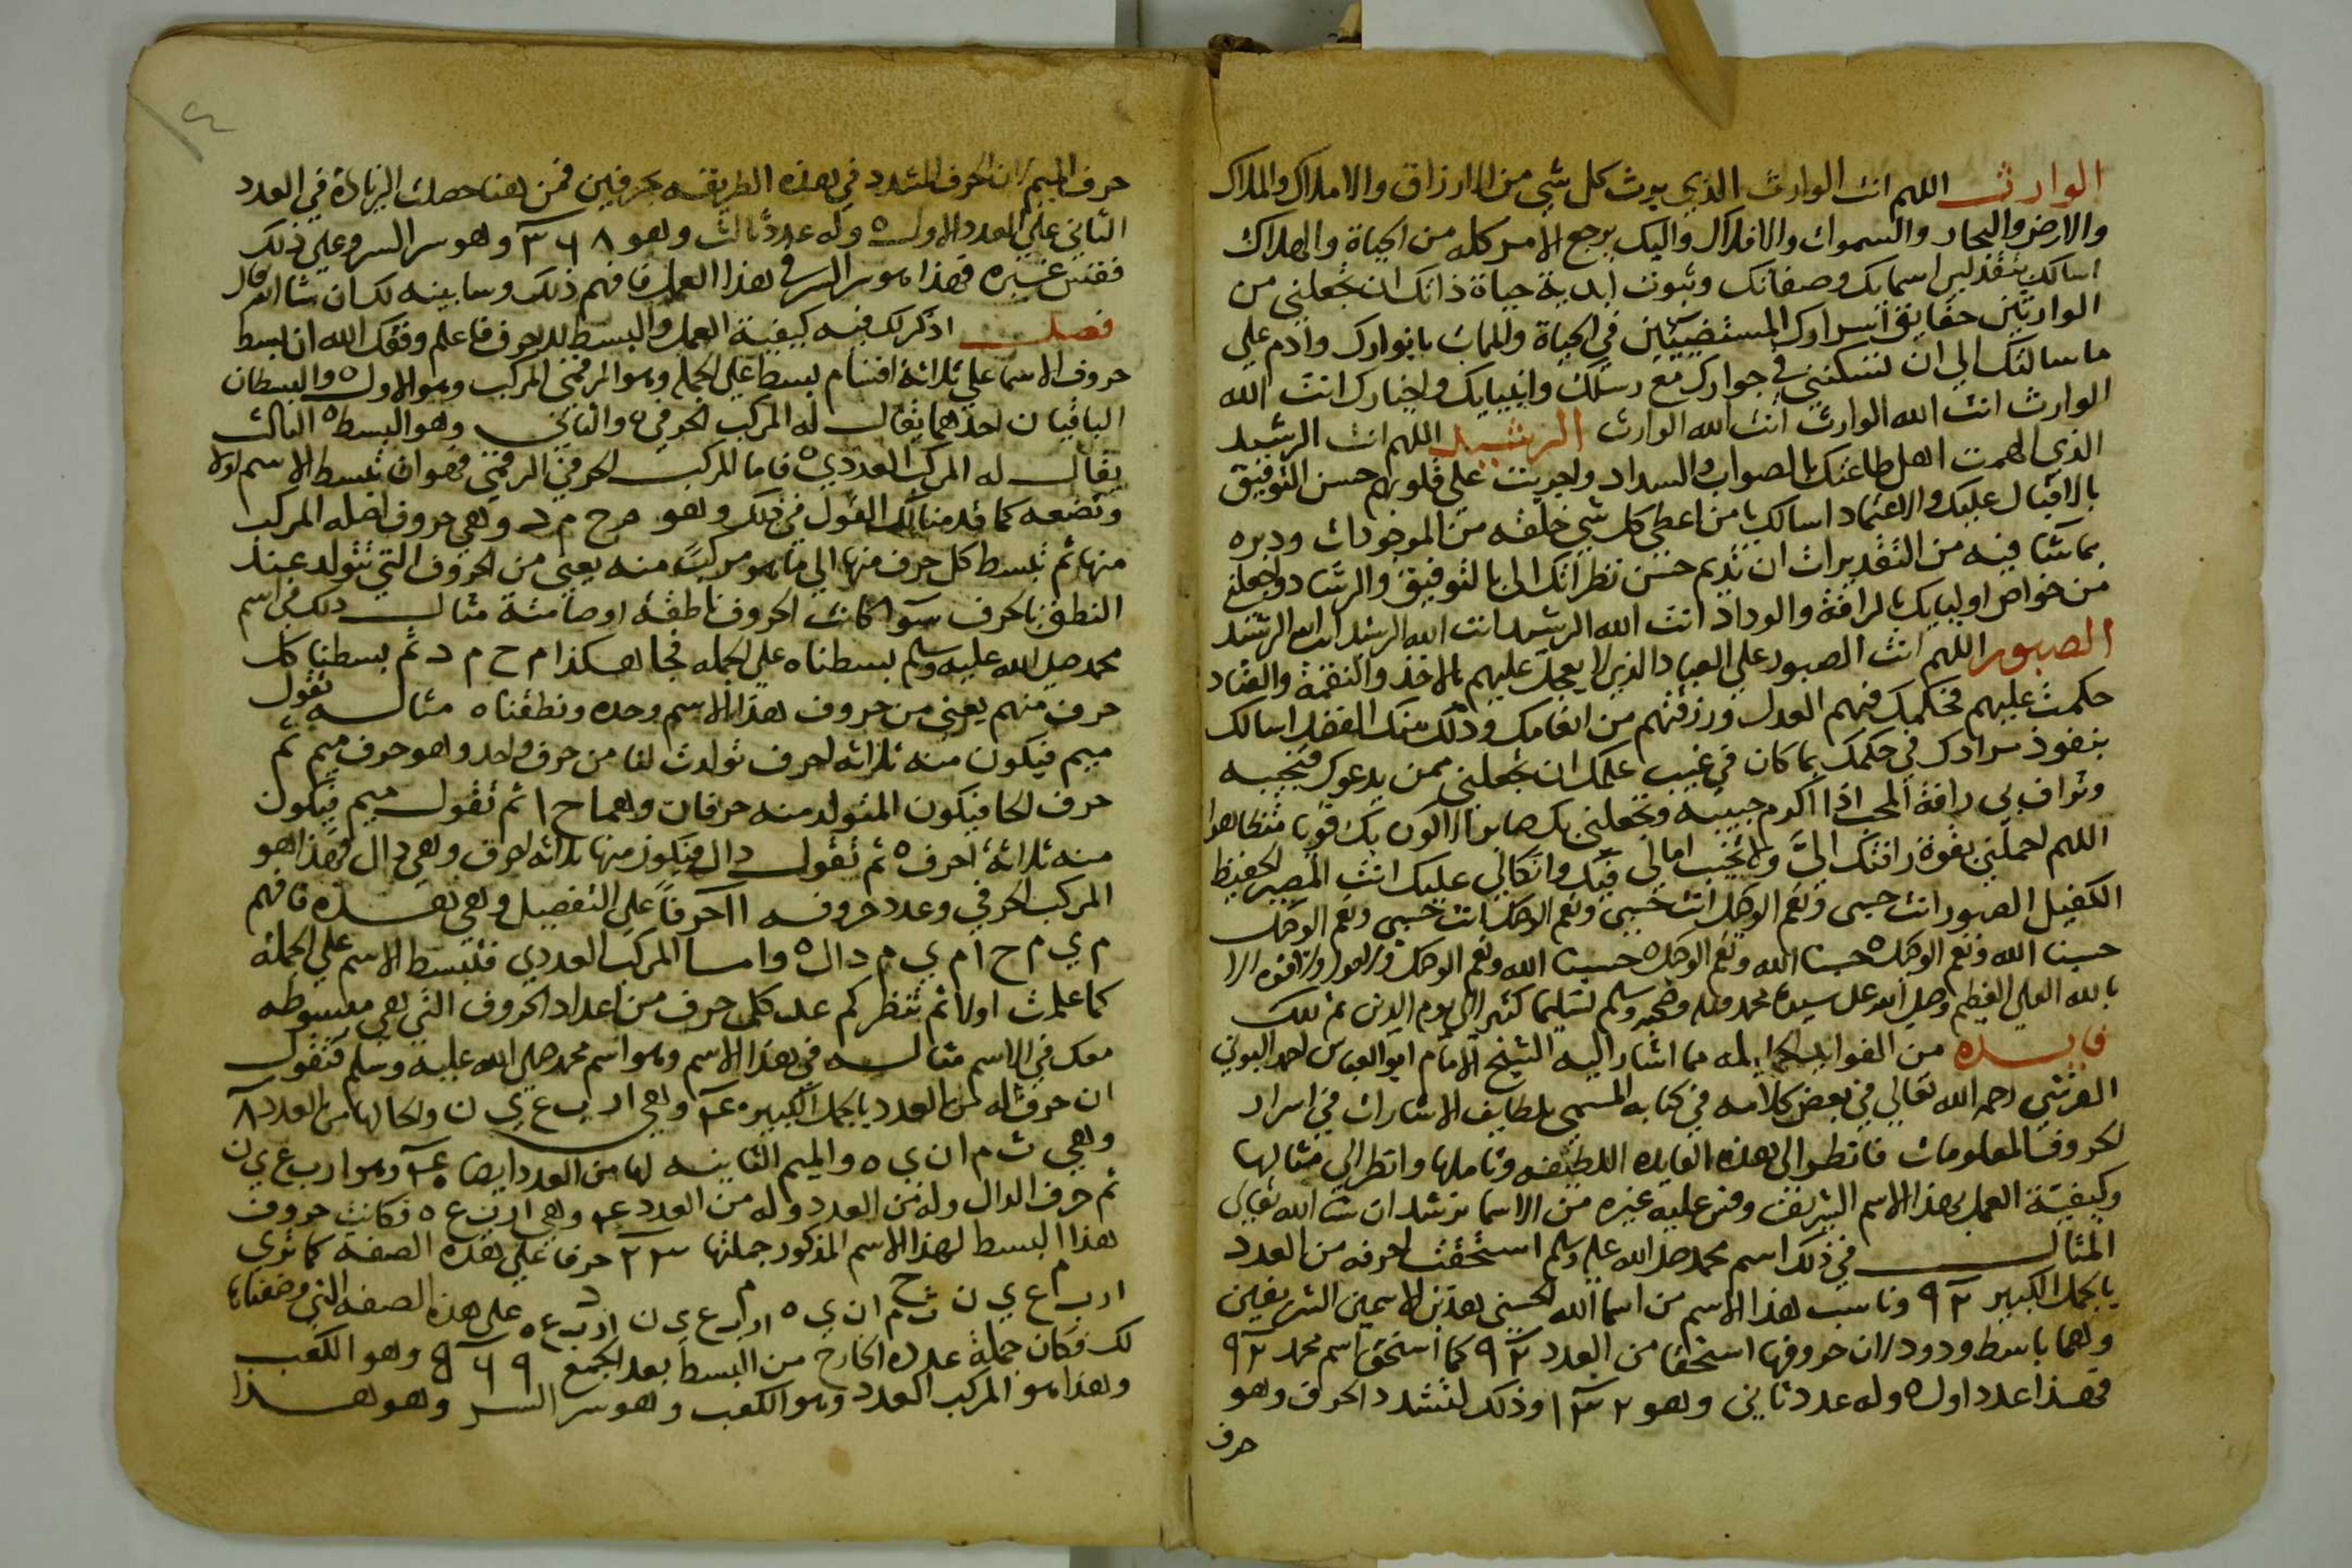 الوارث اللهم انت الوارث الذي يرث كل شي من الارزاق والاملاك والملاك
والارض والبحار والسموات والافلاك واليك يرجع الامر كله من الحياة والهلاك
اسالك بتقديس اسمايك وصفاتك وثبوت ابدية حياة ذاتك ان تجعلني من
الوارثين حقايق اسرارك المستضيئين في الحياة والممات بانوارك وادم علي
ما سالتك الي ان تسكنني في جوارك مع رسلك وانبيايك واخيارك انت الله
الوارث انت الله الوارث انت الله الوارث الرشيد اللهم انت الرشيد
الذي الهمت اهل طاعتك بالصواب والسداد واجريت علي قلوبهم حسن التوفيق
بالاقبال عليك والاعتماد اسالك يا من اعطي كل شي خلقه من الموجودات ودبره
بما شا فيه من التقديرات ان تديم حسن نظراتك الي بالتوفيق والرشاد واجعلني
من خواص اوليايك بالرافة والوداد انت الله الرشيد انت الله الرشيد انت الله الرشيد
الصبور اللهم انت الصبور علي العباد الذي لا يعجل عليهم بالاخذ والنقمة والعناد
حكمت عليهم فحكمك فيهم العدل ورزقتهم من انعامك وذلك منك الفضل اسالك
بنفوذ مرادك في حكمك بما كان في غيب علمك ان تجعلني ممن يدعوك فتجيبه
وتراف بي رافة المحب اذا اكرم حبيبه وتجعلني بك صابرا اكون بك قويا
اللهم احملني بقوة رافتك اليَّ ولا تخيب امالي فيك واتكالي عليك انت الحفيظ
الكفيل الصبور انت حسبي ونعم الوكيل انت حسبي ونعم الوكيل انت حسبي ونعم الوكيل
حسبنا الله ونعم الوكيل حسبنا الله ونعم الوكيل حسبنا الله ونعم الوكيل ولا حول ولا قوة الا
بالله العلي العظيم وصلي الله علي سيدنا محمد واله وصحبه وسلم تسليما كثيرا الي يوم الدين
فايده من الفوايد الجليله مما اشار اليه الشيخ الامام ابو العباس احمد البوني
القرشي رحمه الله تعالي في بعض كلامه في كتابه المسمي بلطايف الاشارات في اسرار
الحروف المعلومات فانظر الي هذه الفايده اللطيفه وتاملها وانظر الي مثالها
وكيفية العمل بهذا الاسم الشريف وقس عليه غيره من الاسما ترشد ان شا الله تعالي
المثال في ذلك اسم محمد صلي الله عليه وسلم استحقت احرفه من العدد
بالجمل الكبير ٩٢ وناسب هذا الاسم من اسما الله الحسني هذين الاسمين الشريفين
وهما باسط ودود ان حروفها استحقا من العدد ٩٢ كما استحق اسم محمد ٩٢
فهذا عدد اول ٥ وله عدد ثاني وهو ١٣٢ وذلك لتشدد الحرف وهو
حرف
حرف الميم ان الحرف المشدد في هذه الطريقه بحرفين فمن هنا حصلت الزيادة في العدد
الثاني علي العدد الاول ٥ وله عدد ثالث وهو ٣٦٨ وهو سر السر وعلي ذلك
فقس غيره فهذا هو سر السر في هذا العمل فافهم ذلك وسابينه لك ان شا الله تعالي
فصل اذكر لك فيه كيفية العمل والبسط للحروف فاعلم وفقك الله ان بسط
حروف الاسما علي ثلاثة اقسام بسط علي الجمله وهو الرقمي المركب وهو الاول ٥ والبسطان
الباقيان احدهما يقال له المركب الحرفي والثاني وهو البسط الثالث
يقال له المركب العددي ٥ فاما المركب الحرفي الرقمي فهو ان تبسط الاسم اولا
وتضعه كما قدمنا لك القول في ذلك وهو م ح م د وهي حروف اصله المركب
منها ثم تبسط كل حرف منها الي ما هو مركب منه يعني من الحروف التي تتولد عند
النطق بالحرف سوا كانت الحروف ناطقة او صامتة مثال ذلك في اسم
محمد صلي الله عليه وسلم بسطناه علي الجمله فجا هكذا م ح م د ثم بسطنا كل
حرف منهم يعني من حروف هذا الاسم وحده ونطقناه مثاله تقول
ميم فيكون منه ثلاثه احرف تولدت لنا من حرف واحد وهو حرف ميم ثم
حرف الحا فيكون المتولد منه حرفان وهما ح ا ثم تقول ميم فيكون
منه ثلاثة احرف ٥ ثم تقول دال فيكون منها ثلاثه احرف وهي دال فهذا هو
المركب الحرفي وعدد حروفه ١١ حرفاً علي التفصيل وهي هذه فافهم
م ي م ح ا م ي م د ال ٥ واما المركب العددي فتبسط الاسم علي الجملة
كما علمت اولا ثم تنظر كم عدد كل حرف من اعداد الحروف التي هي مبسوطه
معك في الاسم مثاله في هذا الاسم وهو اسم محمد صلي الله عليه وسلم فتقول
ان حرف له من العدد بالجمل الكبير ٤٠ وهي ار ب ع ي ن والحا لها من العدد ٨
وهي ث م ان ي ه والميم الثانيه لها من العدد ايضا ٤٠ وهو ار ب ع ي ن
ثم حرف الدال وله من العدد وله من العدد ٤ وهي ار ب ع ه فكانت حروف
هذا البسط لهذا الاسم المذكور جملتها ٢٣ حرفا علي هذه الصفه كما تري
م ح م د
ار ب ع ي ن ث م ان ي ه ار ب ع ي ن ار ب ع ه علي هذه الصفه التي وضعناها
لك فكان جملة عدده الخارج من البسط بعد الجمع ٩٦٩ وهو الكعب
وهذا هو المركب العدد وهو الكعب وهو سر السر وهو هذا